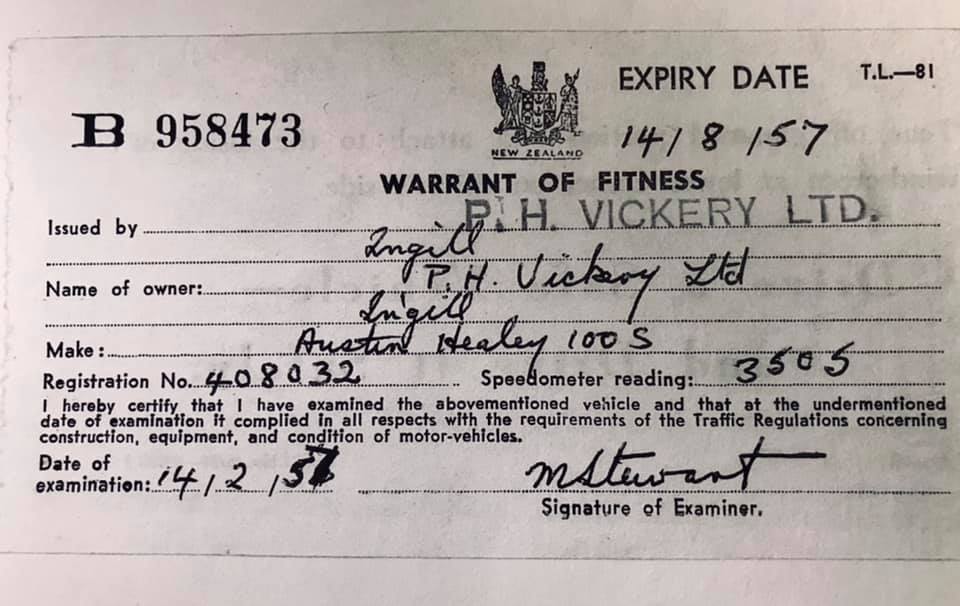 EXPIRY DATE T.L.—81
B 958473
14/8/57
NEW ZEALAND
WARRANT OF FITNESS
Issued by P. H. VICKERY LTD.
Ingill
Name of owner: P.H. Vickery Ltd
Ingill
Make: Austin Healey 100 S
Registration No. 408032 Speedometer reading: 3505
I hereby certify that I have examined the abovementioned vehicle and that at the undermentioned
date of examination it complied in all respects with the requirements of the Traffic Regulations concerning
construction, equipment, and condition of motor-vehicles.
Date of
examination: 14/2/57 MStewart
Signature of Examiner.